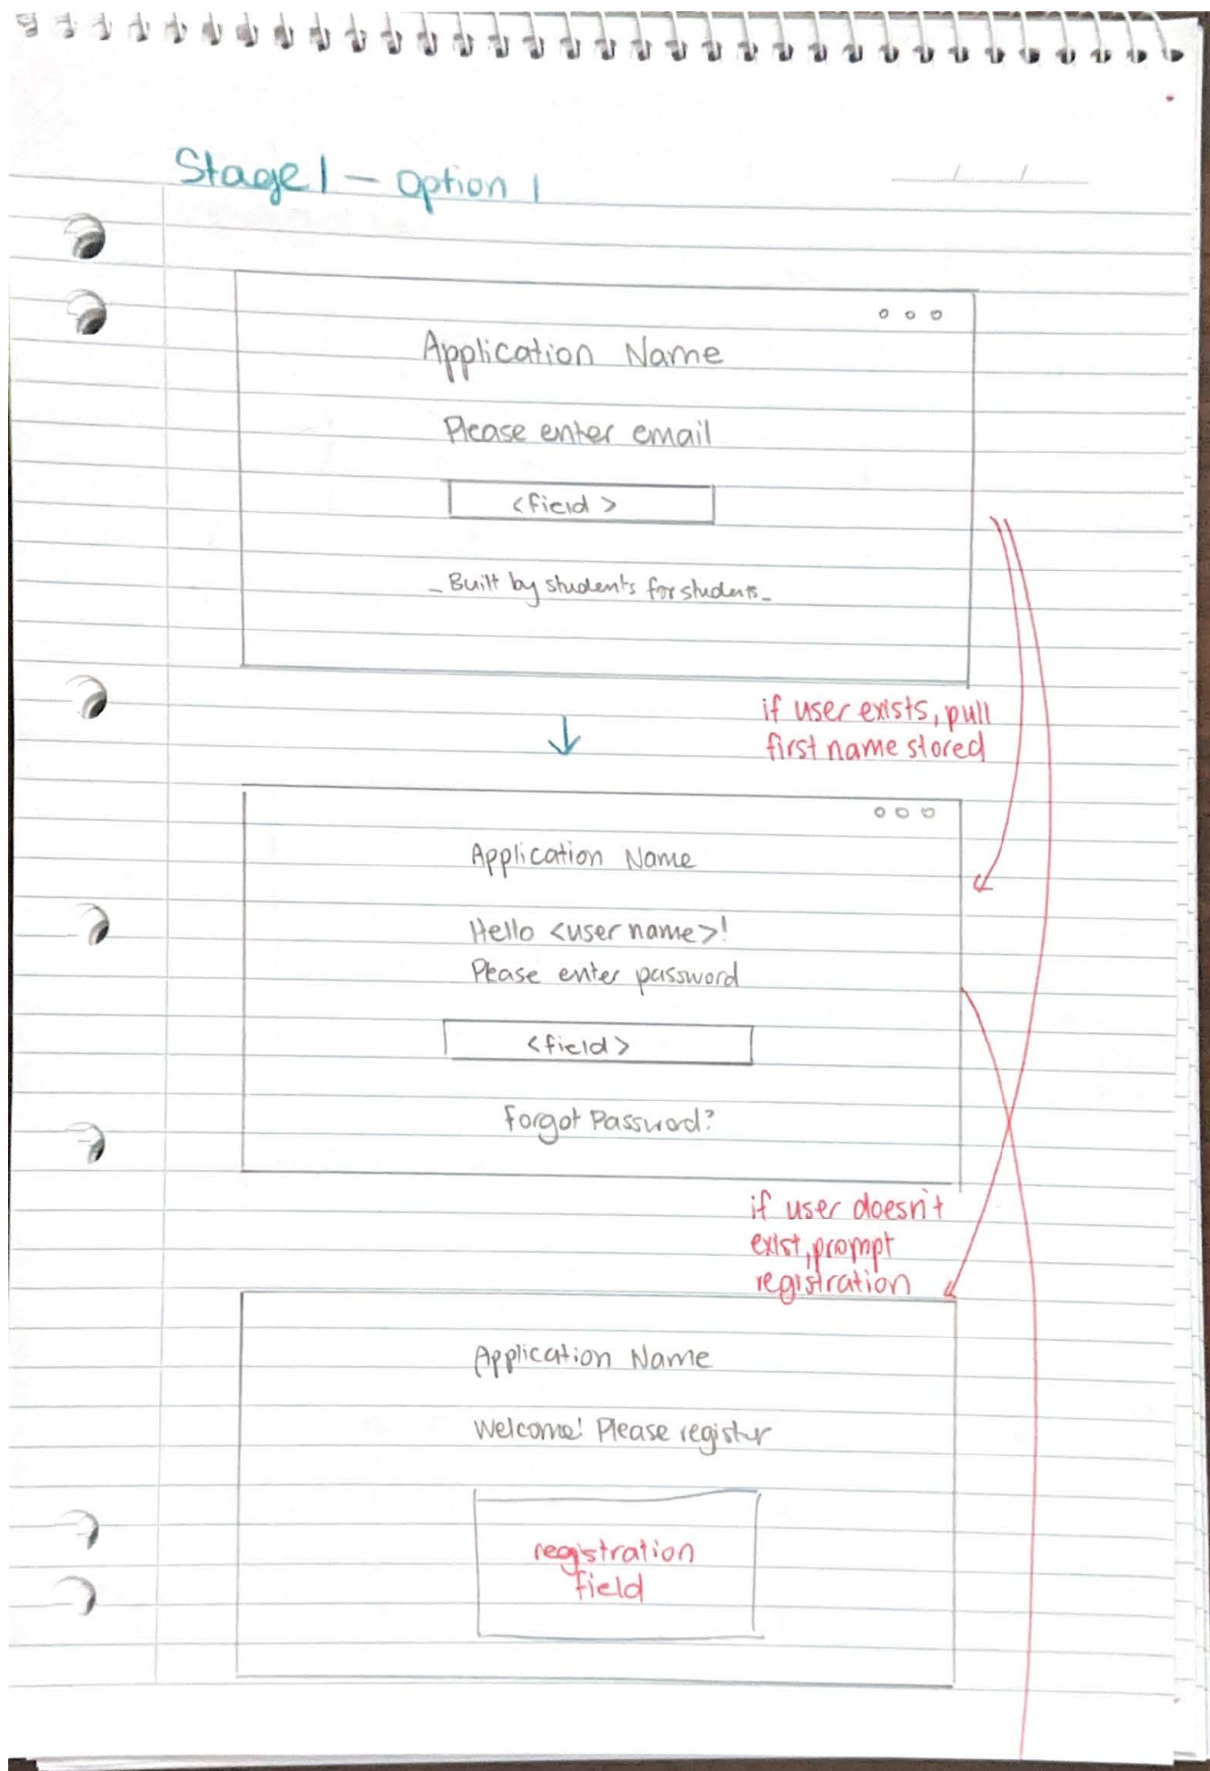 Stage 1 - Option 1
Application Name
Please enter email
<field>
- Built by students for students -
if user exists, pull
first name stored
Application Name
Hello <user name>!
Please enter password
<field>
Forgot Password?
if user doesn't
exist, prompt
registration
Application Name
Welcome! Please register
registration
field